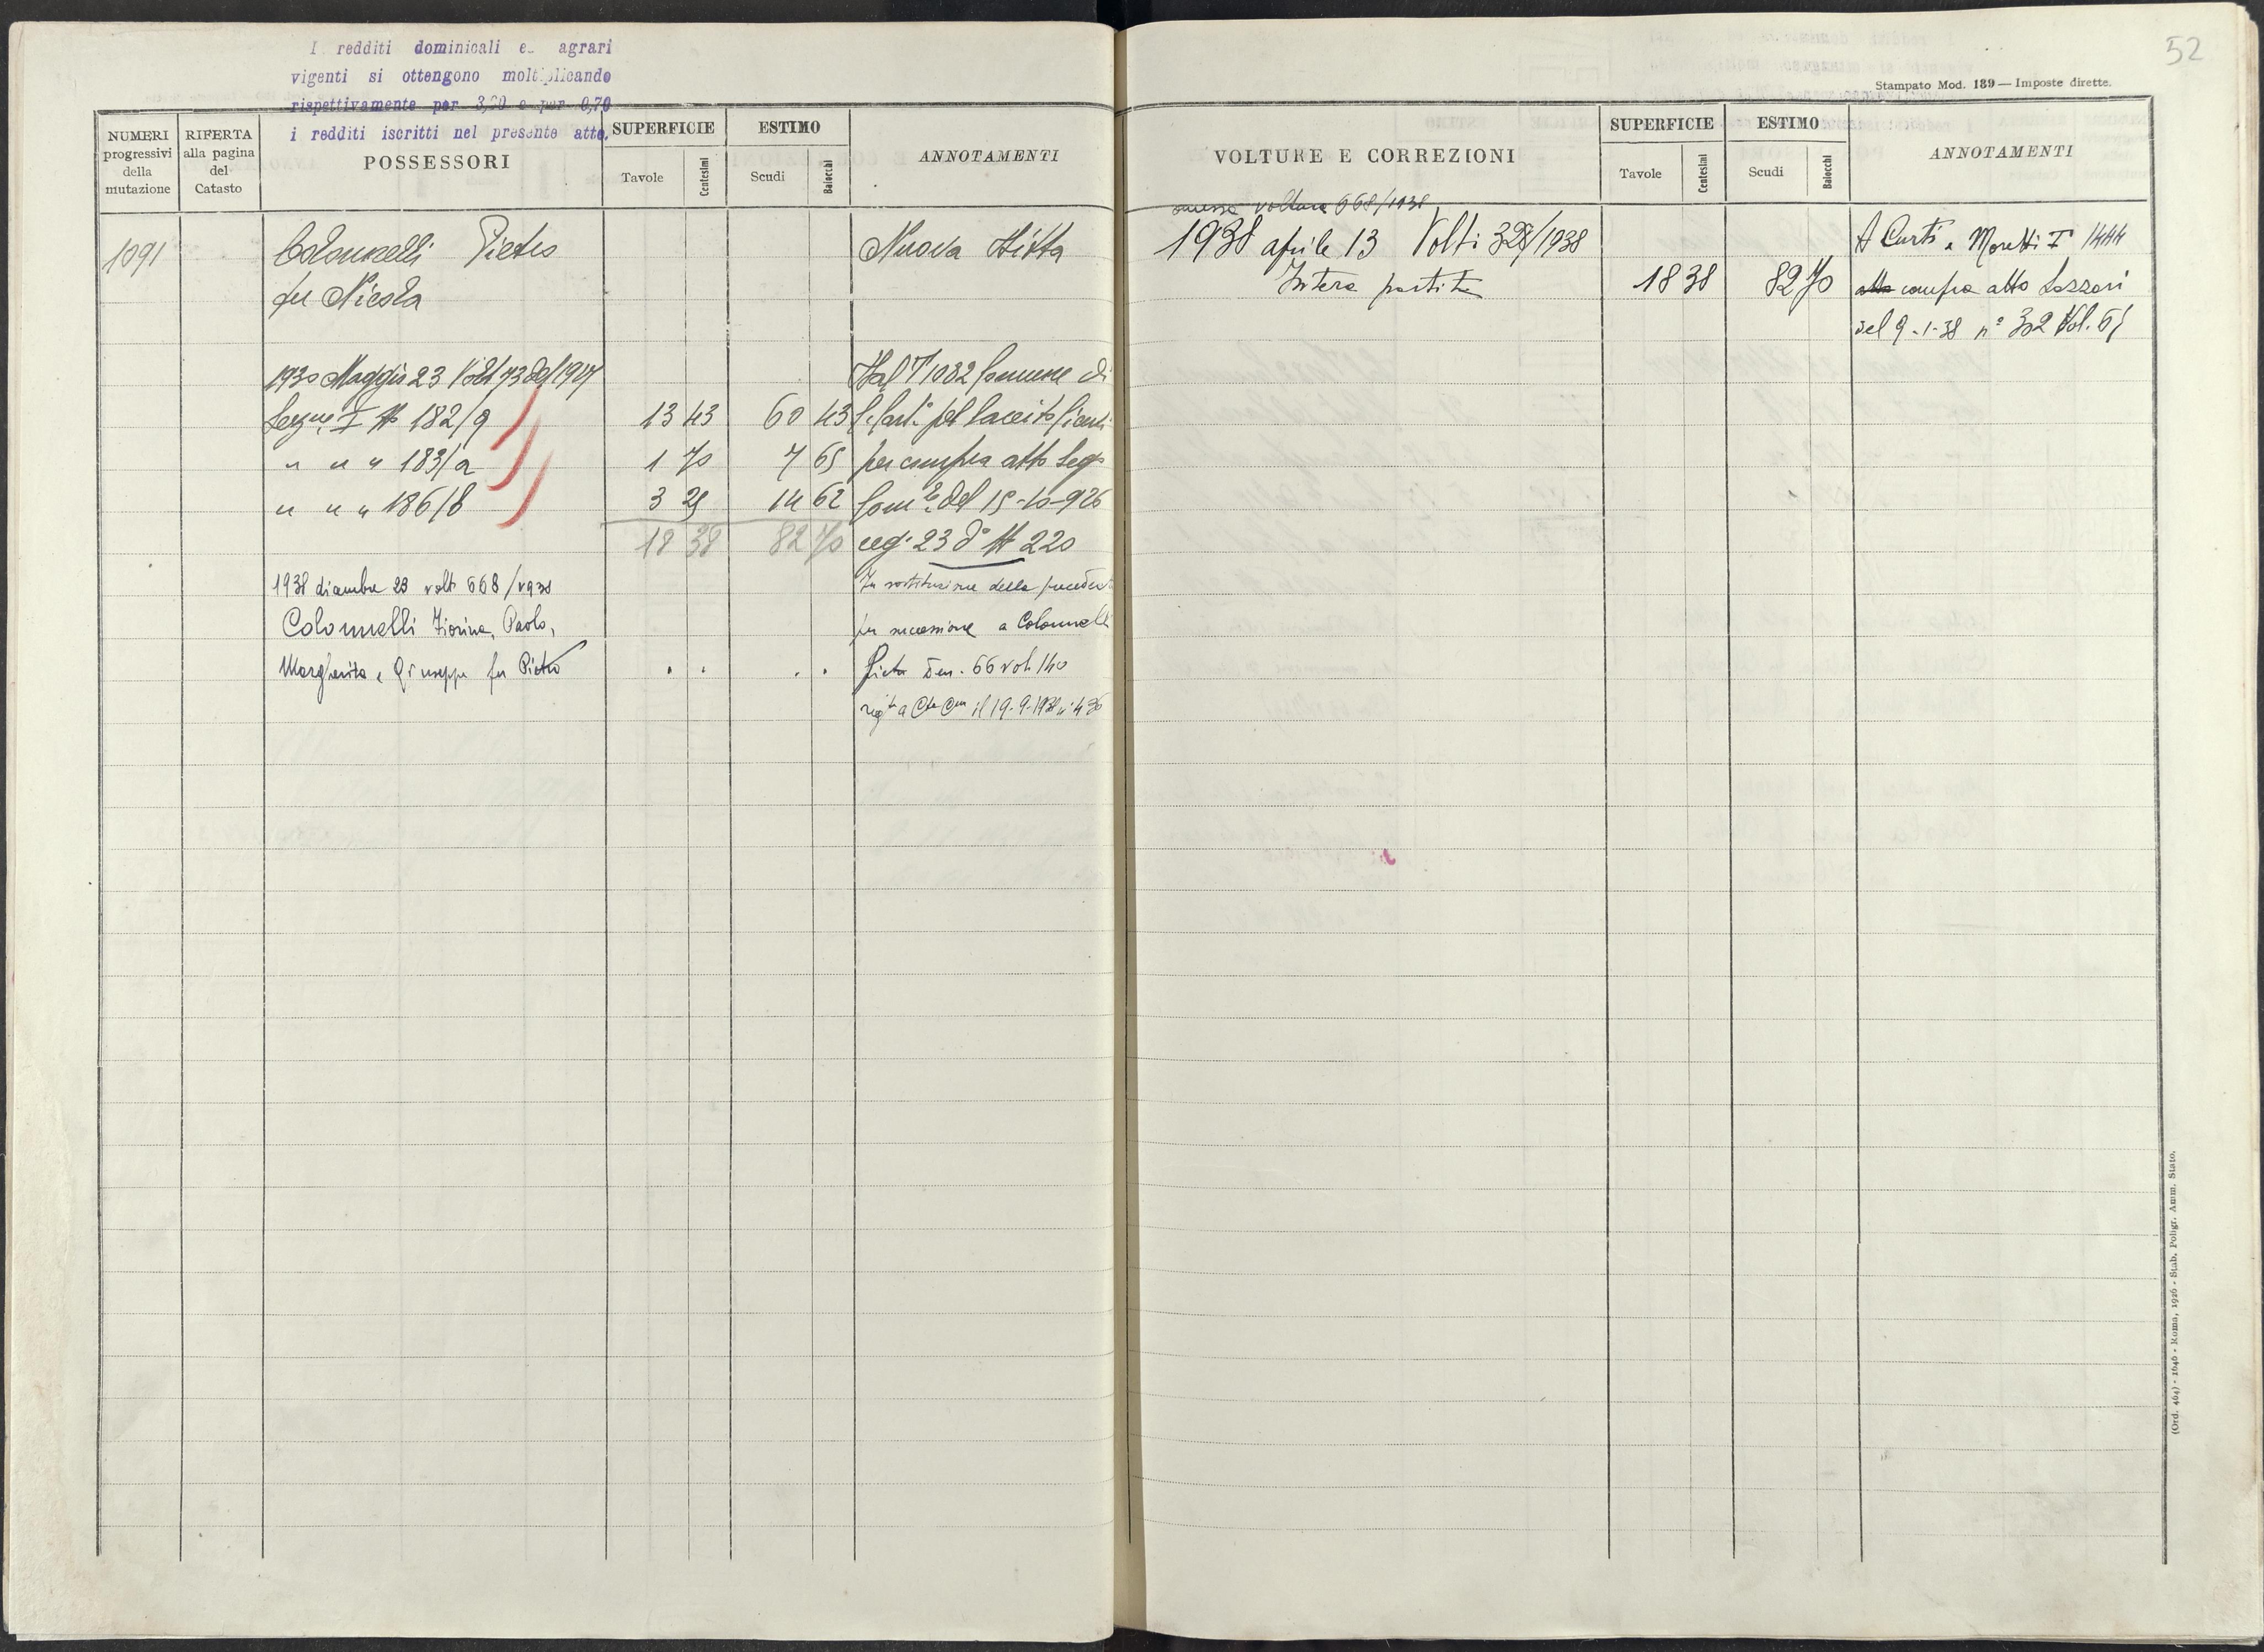 I redditi dominicali e agrari
vigenti si ottengono moltiplicando
rispettivamente per 3,00 e per 0,70
i redditi iscritti nel presente atto.
NUMERI progressivi della mutazione
RIFERTA alla pagina del Catasto
POSSESSORI
SUPERFICIE
Tavole
Centesimi
ESTIMO
Scudi
Baiocchi
ANNOTAMENTI
1091 Colonnelli Pietro Nuova Ditta
fu Nicola
1930 Maggio 23 Volt 73 del 1927 Dal T 1082 Comune di
Sezne I N 182/9 13 43 60 43
" " " 183/a 1 70 7 65 per compra atto Sego
" " " 186/8 3 25 14 62 del 15-10-926
18 38 82 70 reg. 23 do N 220
1938 dicembre 23 volt 668/1938 In sostituzione della precedente
Colonnelli Fiorina, Paolo, per successione a Colonnelli
Margherita e Giuseppe fu Pietro " " " " Pietro den. 66 vol 140
regta a il 19-9-1938 n. 436
52
Stampato Mod. 189 — Imposte dirette.
VOLTURE E CORREZIONI
SUPERFICIE
Tavole
Centesimi
ESTIMO
Scudi
Baiocchi
ANNOTAMENTI
omessa voltura 668/1938
1938 aprile 13 Volt i 328/1938 A Curti e Moretti T 1444
Intera partita 18 38 82 70 atto compra atto Lazzari
del 9-1-38 n° 302 Vol. 61
(Ord. 464) - 1646 - Roma, 1926 - Stab. Poligr. Amm. Stato.